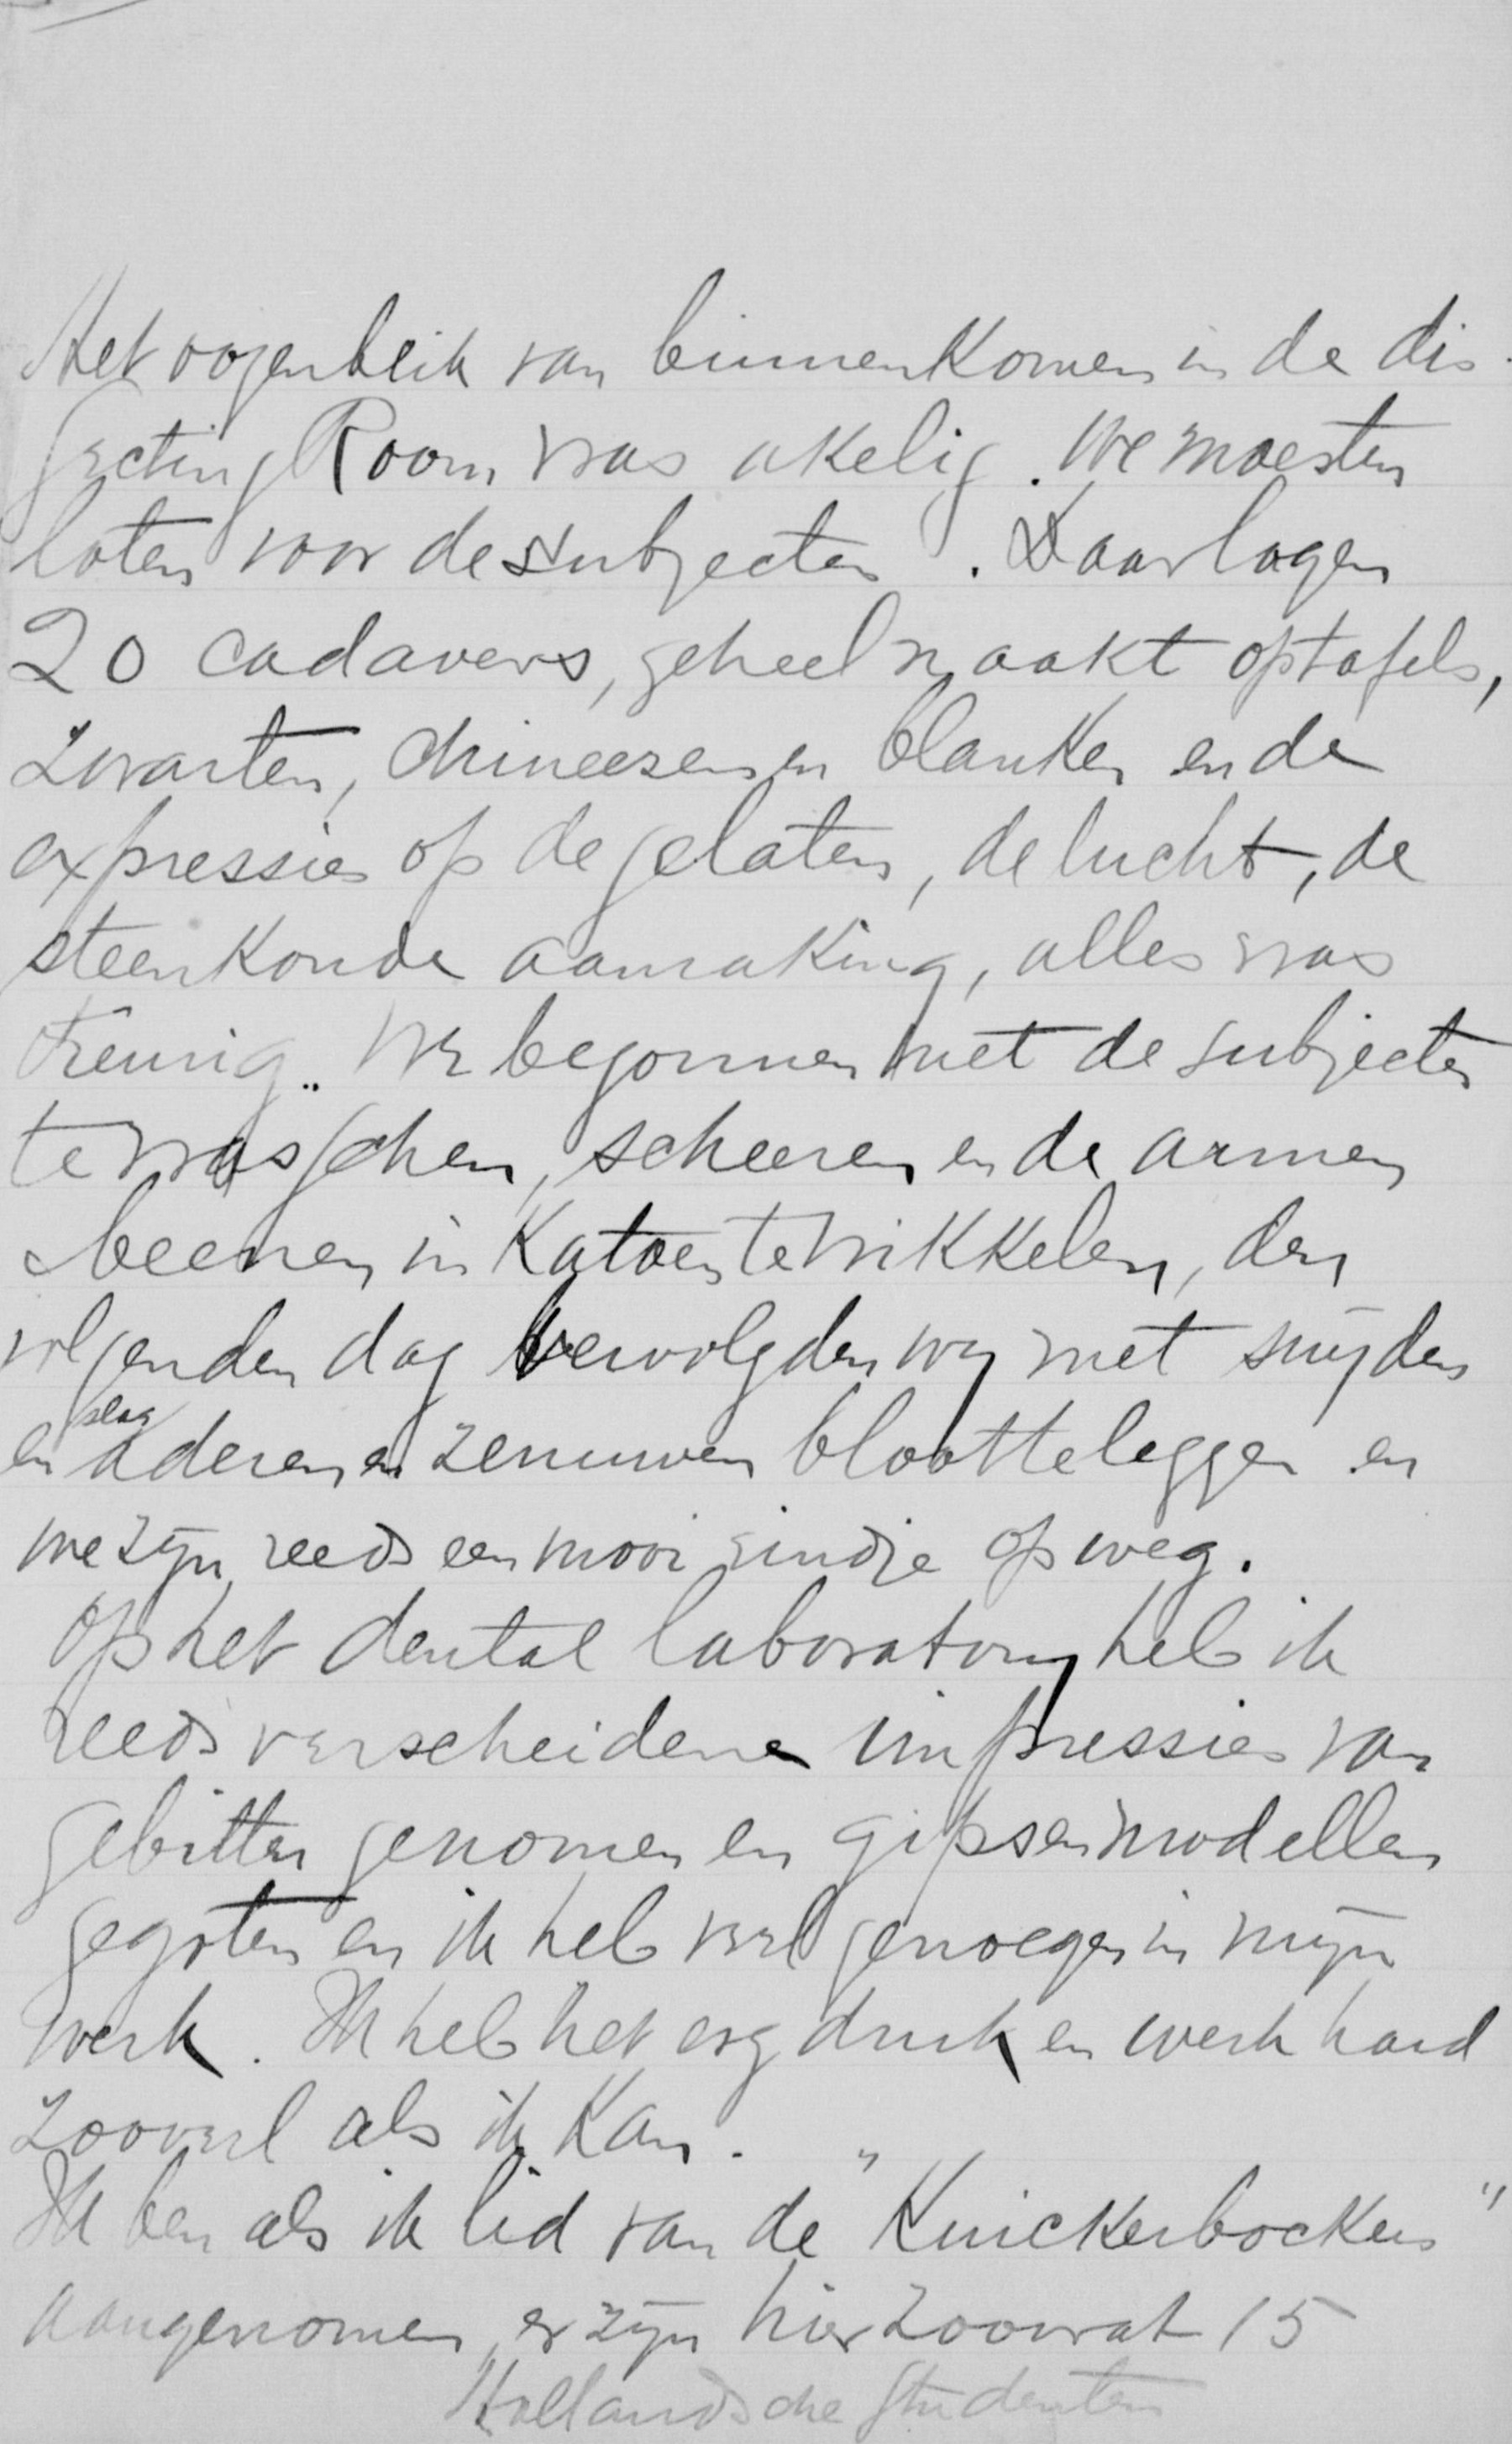 Het oogenblik van binnenkomen in de dis-
secting Room was akelig. We moesten
loten voor de subjecten. Daar lagen
20 cadavers, geheel naakt op tafels,
zwarten, chineezen en blanken en de
expressies op de gelaten, de lucht, de
steenkoude aanraking, alles was
treurig.. We begonnen met de subjecten
te wasschen, scheeren en de armen
beenen in Katoen te wikkelen, den
volgenden dag vervolgden wij met snijden
en slagaderen en zenuwen bloot te leggen en
we zijn reeds een mooi eindje op weg.
Op het dental laboratory heb ik
reeds verscheidene impressies van
gebitten genomen en gipsen modellen
gegoten en ik heb veel genoegen in mijn
werk. Ik heb het erg druk en werk hard
zooveel als ik Kan.
Ik ben als ik lid van de "Knickerbockers"
aangenomen, er zijn hier zoowat 15
Hollandsche Studenten